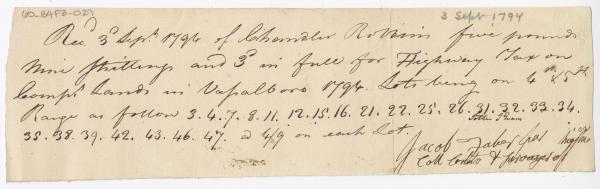 60-8AF3-029
3 Sept 1794
Recd 3d Sept. 1794 of Chandler Robbins five pounds
Nine Shillings and 3d in full for Highway Tax on
Comps Lands in Vassalboro 1794. Lots being on 4th & 5th
Range as follow 3. 4. 7. 8. 11. 12. 15. 16. 21. 22. 25. 26. 31. 32. 33. 34.
35. 38. 39. 42. 43. 46. 47. a 4/9 on each Lot
Jacob Taber
Coll &